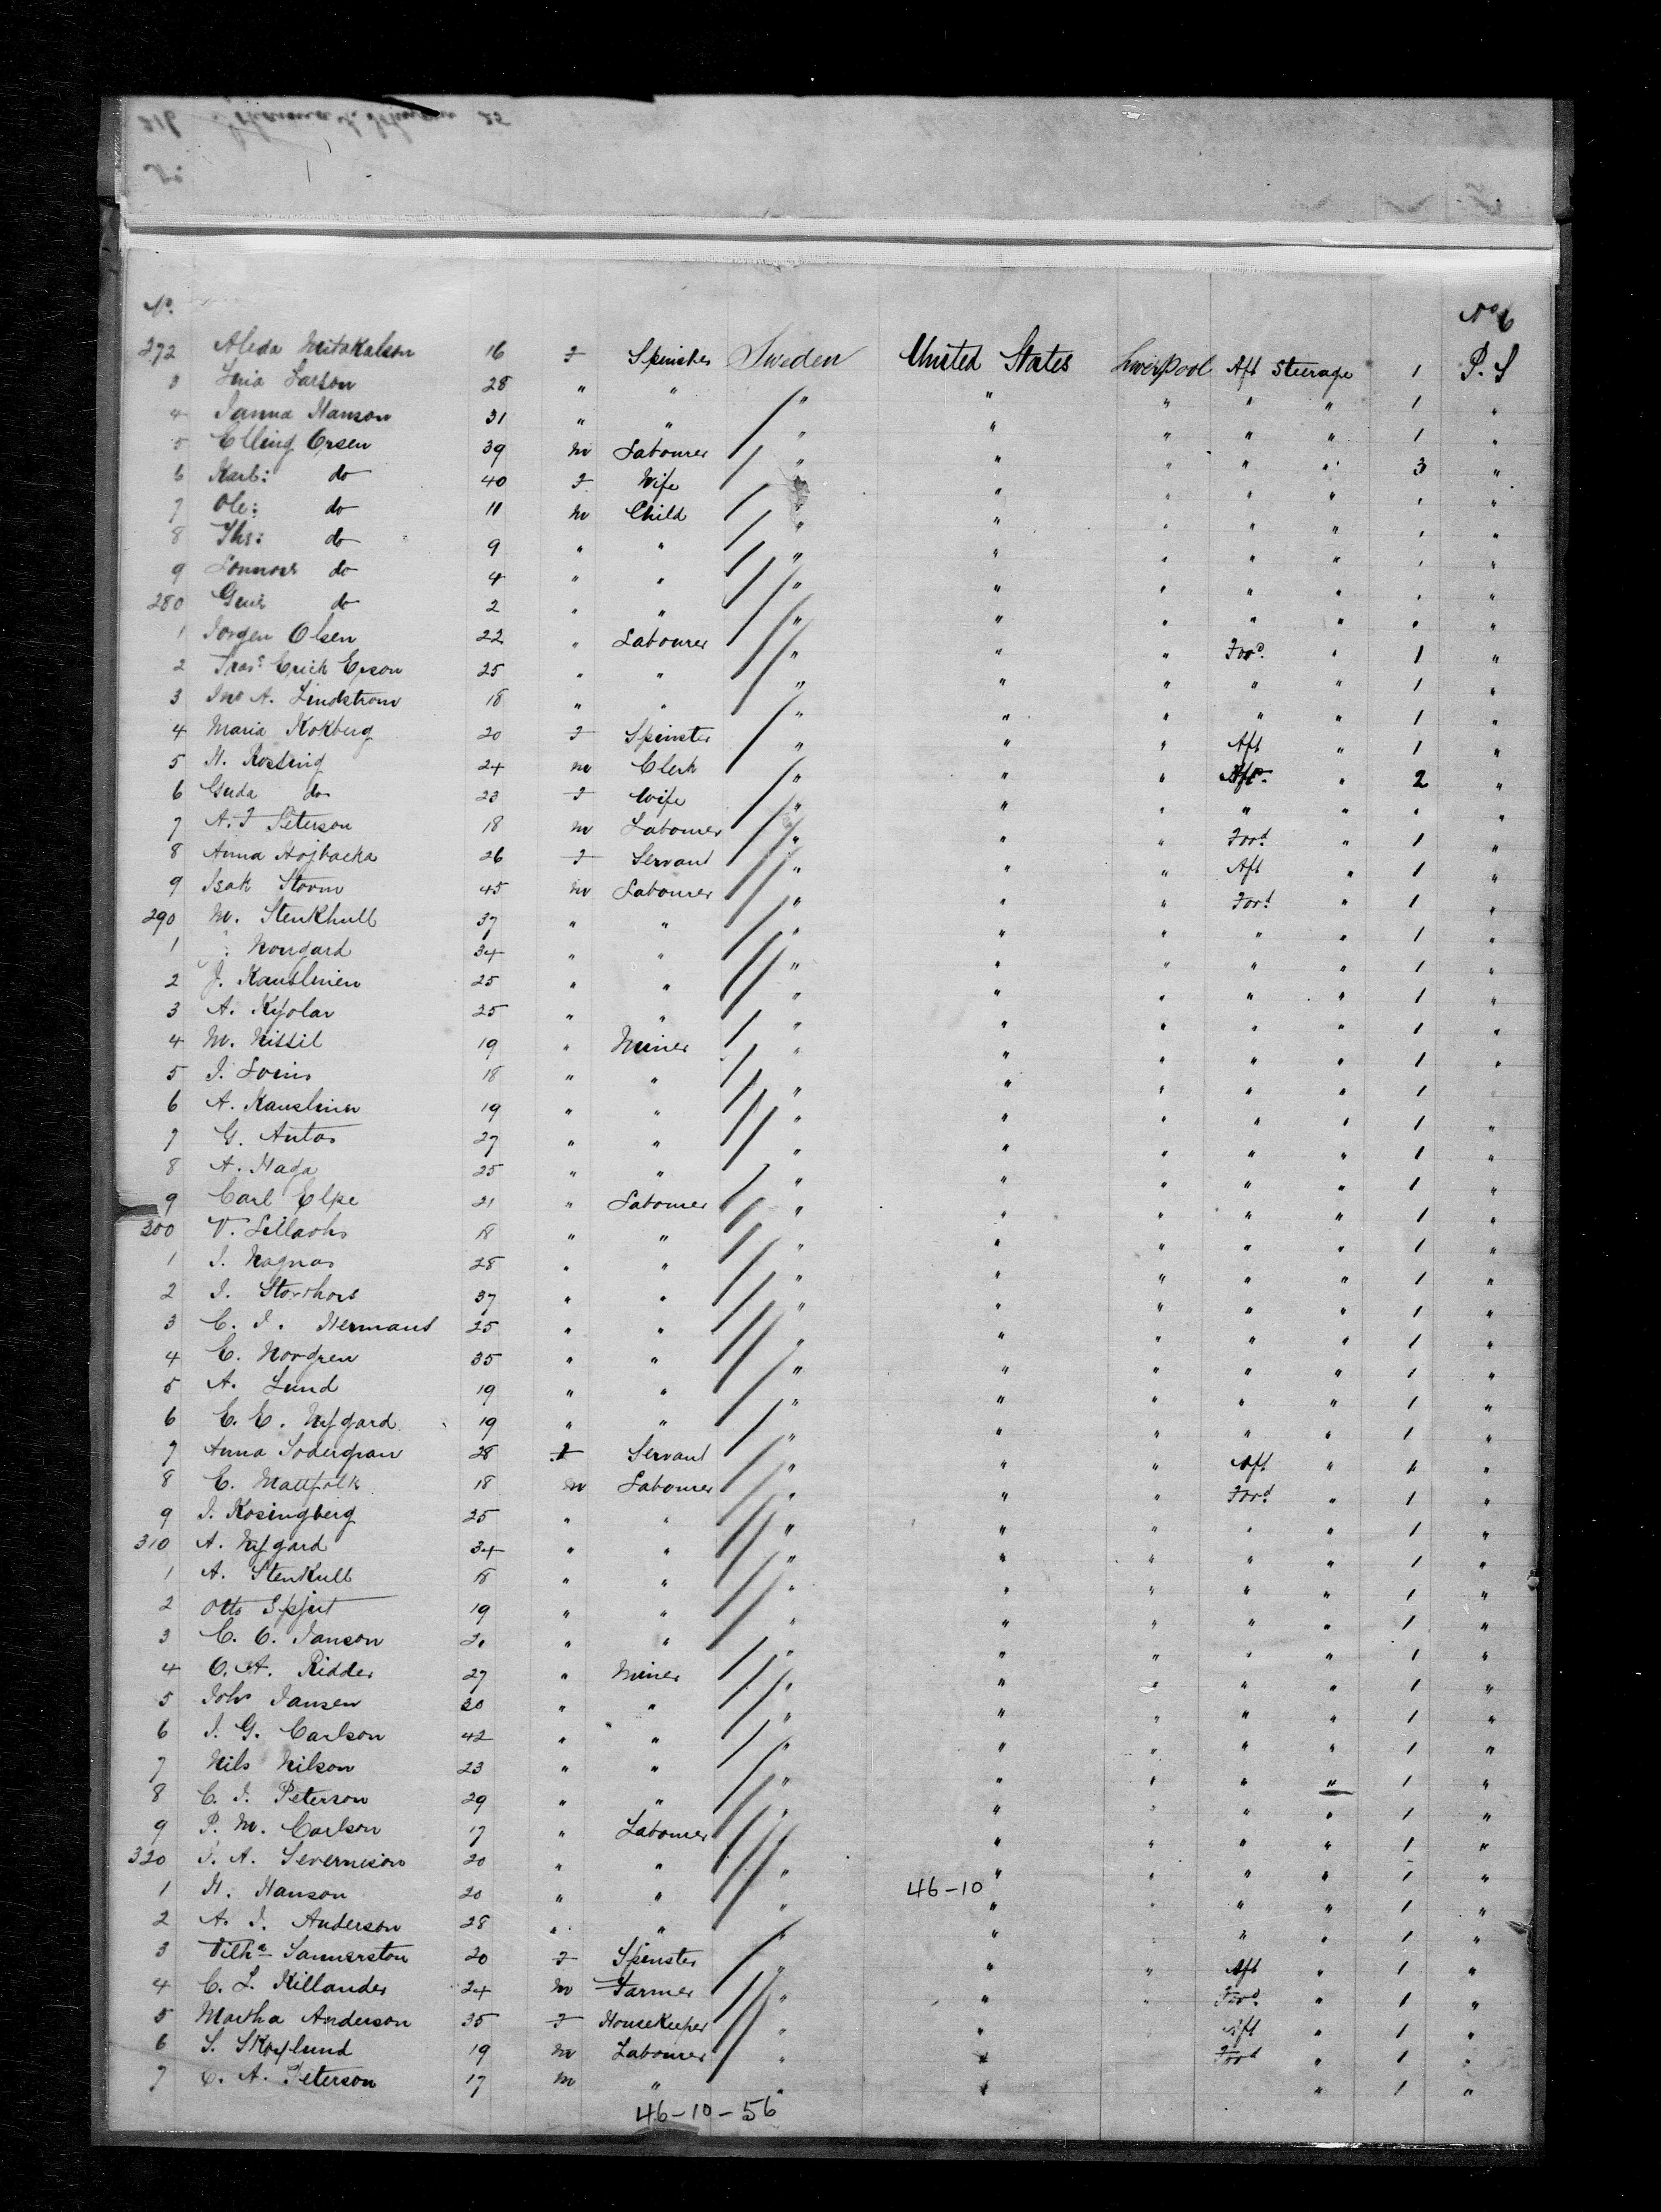 No. No 6
272 Aleda Mitakalson 16 F Spinster Sweden United States Liverpool Aft Steerage 1 P.S
3 Larson 28 " " " " " " " 1 "
4 Janna Hanson 31 " " " " " " " 1 "
5 Elling Orsen 39 M Labourer " " " " " 3 "
6 Karb: do 40 F Wife " " " " " " "
7 Ole: do 11 M Child " " " " " " "
8 Ths: do 9 " " " " " " " " "
9 do 4 " " " " " " " " "
280 do 2 " " " " " " " " "
1 Jorgen Olsen 22 " Labourer " " " Ford " 1 "
2 Erick Erson 25 " " " " " " " 1 "
3 Jno A. Lindstrom 18 " " " " " " " 1 "
4 Maria Kokberg 20 F Spinster " " " Aft " 1 "
5 H. Rosling 24 M Clerk " " " Aft " 2 "
6 Guda do 23 F Wife " " " " " " "
7 A. F Peterson 18 M Labourer " " " Ford " 1 "
8 Anna Hojbacka 26 F Servant " " " Aft " 1 "
9 Isak Storm 45 M Labourer " " " Ford " 1 "
290 M. Stenkhull 37 " " " " " " " 1 "
1 Norrgard 34 " " " " " " " 1 "
2 J. Kauslinen 25 " " " " " " " 1 "
3 A. Kyolar 25 " " " " " " " 1 "
4 M. Nissil 19 " Miner " " " " " 1 "
5 J. 18 " " " " " " " 1
6 A. Kauslinen 19 " " " " " " " 1 "
7 G. Antas 27 " " " " " " " 1 "
8 A. Haga 25 " " " " " " " 1 "
9 Carl Elke 21 " Labourer " " " " " 1 "
300 V. 18 " " " " " " " 1 "
1 J. Nagnas 28 " " " " " " " 1 "
2 J. Storthors 37 " " " " " " " 1 "
3 C. J. Hermans 25 " " " " " " " 1 "
4 E. Nordgren 35 " " " " " " " 1 "
5 A. Lund 19 " " " " " " " 1 "
6 E. E. Nygard 19 " " " " " " " 1 "
7 Anna Sodergran 28 F Servant " " " Aft " 1 "
8 E. Mattfolk 18 M Labourer " " " Ford " 1 "
9 J. Kosingberg 25 " " " " " " " 1 "
310 A. Nygard 34 " " " " " " " 1 "
1 A. Stenkull 18 " " " " " " " 1 "
2 Otto Spjut 19 " " " " " " " 1 "
3 C. O. Janson " " " " " " " 1 "
4 O. A. Ridder 27 " Miner " " " " " 1 "
5 Joh Jansen 30 " " " " " " " 1 "
6 J. G. Carlson 42 " " " " " " " 1 "
7 Nils Nilson 23 " " " " " " " 1 "
8 C. J. Peterson 29 " " " " " " " 1 "
9 P. M. Carlson 17 " Labourer " " " " " 1 "
320 A. Severneson 20 " " " " " " " 1 "
1 H. Hanson 20 " " " 46-10 " " " " 1 "
2 A. J. Anderson 28 " " " " " " " 1 "
3 Vilha Sannerston 20 F Spinster " " " Aft " 1 "
4 C. L. Killander 24 M Farmer " " " Ford " 1 "
5 Martha Anderson 35 F HouseKeeper " " Aft " 1 "
6 S. Skoylund 19 M Labourer " " Ford " 1 "
7 C. A. Peterson 17 M " " " " 1 "
46-10-56